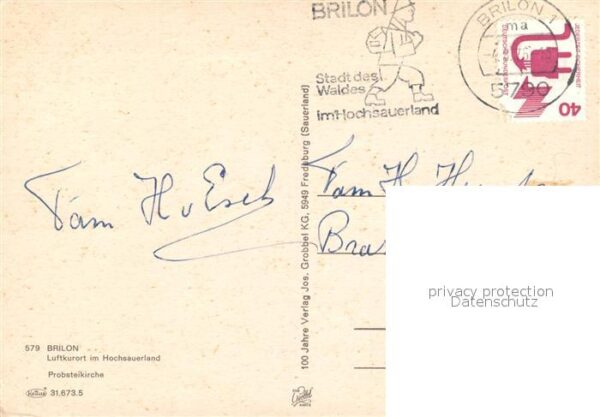 BRILON
Stadt des
Waldes
im Hochsauerland
BRILON 1
ma
5790
DEUTSCHE BUNDESPOST
40
Fam H v Esch
Fam H.
Bra
privacy protection
Datenschutz
100 Jahre Verlag Jos. Grobbel KG, 5949 Fredeburg (Sauerland)
579 BRILON
Luftkurort im Hochsauerland
Probsteikirche
31.673.5